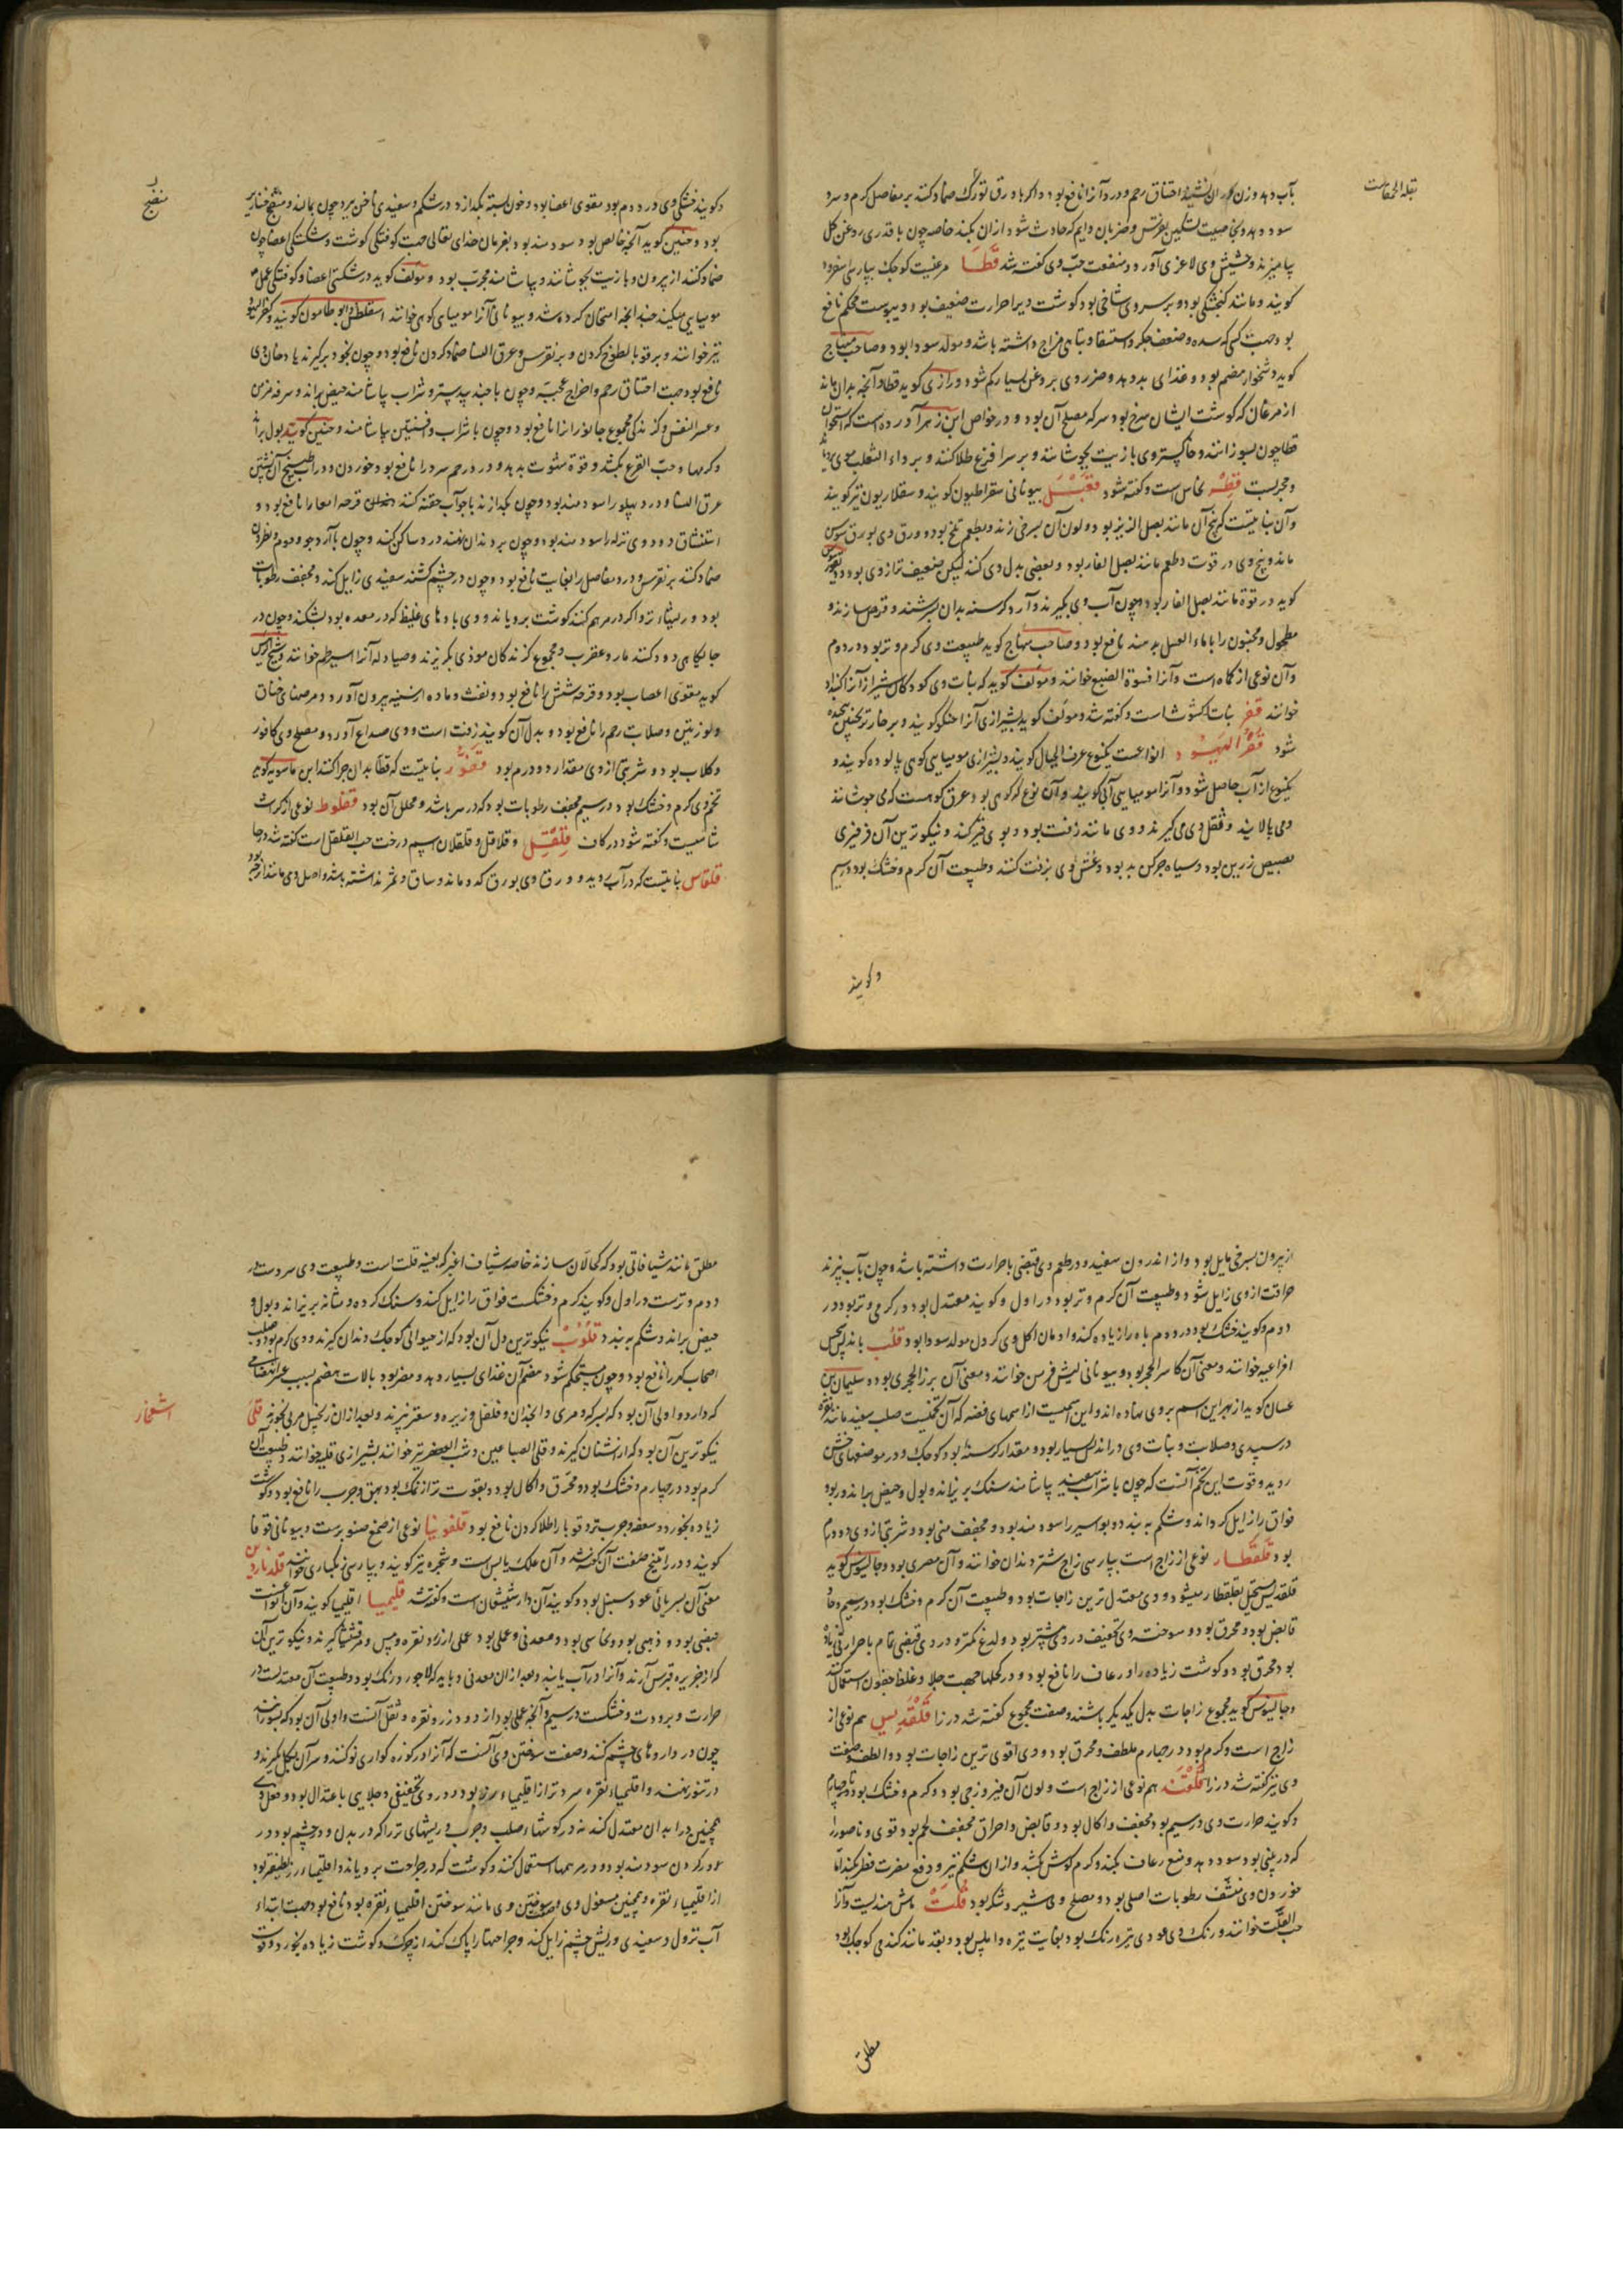 بقلة الحمقاست
بآب دهد وزن اختناق رحم و درد آنرا نافع بود و اگر با ورق تورک ضماد کنند بر مفاصل گرم و سرد
سود دهد جهت تسکین نقرس و ضربان دایم که حادث شود از آن بکند خاصه چون با قدری روغن گل
بیامیزند و حشیش وی لاغری آورد و منفعت حب وی گفته شد قطا مرغیست کوچک بپارسی اسفرود
گویند و مانند گنجشکی بود و بر سر وی شاخی بود گوشت ویرا حرارت ضعیف بود و یبوست محکم نافع
بود جهت کسی که سده و ضعف جگر و استسقا و تباهی مزاج داشته باشد و مولد سودا بود و صاحب منهاج
گوید دشخوار هضم بود و غذای بد دهد و ضرر وی بروغن بسیار کم شود و رازی گوید قطا و آنچه بدان ماند
از مرغان که گوشت ایشان سرخ بود سرکه مصلح آن بود و در خواص ابن زهر آورده است که استخوان
قطا چون بسوزانند و خاکستر وی با زیت بجوشانند و بر سر اقرع طلا کنند و بر داء الثعلب موی برویاند
و مجربست قطر نحاس است و گفته شود قعبل بیونانی سقراطیون گویند و سقلاریون نیز گویند
و آن نباتیست که بیخ آن مانند بصل الزیز بود و لون آن بسرخی زند و بطعم تلخ بود و ورق وی بورق سوسن
ماند و بیخ وی در قوت و طعم مانند بصل الفار بود و بعضی بدل وی کنند لیکن ضعیف تر از وی بود
گوید در قوة مانند بصل الفار بود و چون آب وی بگیرند و آرد کرسنه بدان بسرشند و قرص سازند و
مطحول و مجنون را با ماء العسل بدهند نافع بود و صاحب منهاج گوید طبیعت وی گرم و تر بود در دوم
و آن نوعی از کماه است و آنرا فسوة الضبع خوانند و مؤلف گوید که نبات وی کودکان شیراز آنرا
خوانند قفر نبات کشوث است و گفته شد و مؤلف گوید بشیرازی آنرا گویند و بر خار ترنجبین پیچیده
شود قفر الیهود انواعست یکنوع عرف الجبال گویند و بشیرازی مومیایی کوهی پالوده گویند و
یکنوع از آب حاصل شود و آنرا مومیایی آبی گویند و آن نوع که کوهی بود عرق کوهست که می جوشانند
و می پالایند و قفل وی می گیرند و وی مانند زفت بود و بوی قیر کند و نیکوترین آن فرفیری
بصیص زرین بود و سیاه چرکن بد بود و غش وی بزفت کنند و طبیعت آن گرم و خشک بود در سیم
و گویند
منضج
و گویند خشکی وی در دوم بود مقوی اعضا بود و خون بسته بگدازد در شکم و سفیدی ناخن ببرد چون بمالند و منضج خنازیر
بود و حنین گوید آنچه خالص بود سودمند بود بفرمان خدای تعالی جهت کوفتگی گوشت و شکستگی اعضا چون
ضماد کنند از بیرون و با زیت بجوشانند و بیاشامند مجرب بود و مؤلف گوید در شکستگی اعضا و کوفتگی عمل
مومیایی میکند چند آنچه امتحان کرده شد و بیونانی آنرا مومیای کوهی خوانند گویند و کفر الیهود
نیز خوانند و بر قوبا لطوخ کردن و بر نقرس و عرق النسا ضماد کردن نافع بود و چون بخود برگیرند یا دخان وی
نافع بود جهت اختناق رحم و اخراج مجیه و چون با جند بیدستر و شراب بیاشامند حیض براند و سرفه مزمن
و عسر النفس و گزندگی مجموع جانوران را نافع بود و چون با شراب و افسنتین بیاشامند و حنین گوید بول براند
و کرمها و حب القرع بکشد و قوة مثوت بدهد و درد رحم سرد را نافع بود خوردن و در آب طبیخ آن نشستن
عرق النسا و درد پهلو را سودمند بود و چون بگدازند با جوآب حقنه کنند قرحه امعا را نافع بود و
استنشاق دود وی نزله را سودمند بود و چون بر دندان نهند درد ساکن کند و چون با آرد جو و موم و نطرون
ضماد کنند بر نقرس و درد مفاصل را بغایت نافع بود و چون در چشم کشند سفیدی زایل کند و مجفف رطوبات
بود و ریشها تر و اگر در مرهم کنند گوشت برویاند و وی بادهای غلیظ که در معده بود بشکند و چون در
جایگاهی دود کنند مار و عقرب و مجموع گزندگان موذی بگریزند و صیادله آنرا خوانند و شیخ الرئیس
گوید مقوی اعصاب بود و قرحه شش را نافع بود و نفث و ماده از سینه بیرون آورد و مرضهای خناق
و لوزتین و صلابت رحم را نافع بود و بدل آن گویند زفت است و وی صداع آورد و مصلح وی کافور
و گلاب بود و شربتی از وی مقدار دو درم بود قفور نباتیست که قطا بدان چرا کند ابن ماسویه گوید
تخم وی گرم و خشک بود در سیم مجفف رطوبات بود که در سر باشد و محلل آن بود قفلوط نوعی از کراث
شامیست و گفته شود در کاف قلقل و قلاقل و قلقلان اسم درخت حب القلقل است گفته شد در حا
قلقاس نباتیست که در آب روید و ورق وی بورق کدو ماند و ساق و ثمر نداشته باشد و اصل وی مانند
از بیرون بسرخی مایل بود و از اندرون سفید و در طعم وی قبضی با حرارت داشته باشد و چون بآب بپزند
حرافت از وی زایل شود و طبیعت آن گرم و تر بود در اول و گویند معتدل بود در گرمی و تر بود در
دوم و گویند خشک بود در دوم باه را زیاده کند و ادمان اکل وی کردن مولد سودا بود قلب
خوانند و معنی آن کاسر الحجر بود و بیونانی خوانند و معنی آن برز الحجری بود و سلیمان بن
حسان گوید از بهر این اسم بر وی نهاده اند و این اسمیست از اسمهای فضه که آن تخمیست صلب سفید مانند نقره
در سپیدی و صلابت و نبات وی در اندلس بسیار بود و مقدار کرسنه بود کوچک و در موضعهای خشن
روید و قوت این تخم آنست که چون با شراب سفید بیاشامند سنگ بریزاند و بول و حیض براند و ربو و
فواق را زایل گرداند و شکم ببندد و بواسیر را سودمند بود و مجفف منی بود و شربتی از وی دو درم
بود قلقطار نوعی از زاج است بپارسی زاج شتر دندان خوانند و آن مصری بود و جالینوس گوید
قلقدیس مستحیل بقلقطار میشود و وی معتدل ترین زاجات بود و طبیعت آن گرم و خشک بود در سیم و
قابض بود و محرق بود و سوخته وی تجفیف در وی بیشتر بود و لدغ کمتر و در وی قبضی تمام با حرارتی زیاده
بود محرق بود و گوشت زیاده را و رعاف را نافع بود و در کحلها جهت جلا و غلظ جفون استعمال کنند
و جالینوس گوید مجموع زاجات بدل یکدیگر باشند و صفت مجموع گفته شد در زا قلقدیس هم نوعی از
زاج است و گرم بود در چهارم ملطف و محرق بود و وی اقوی ترین زاجات بود و الطف و صفت
وی نیز گفته شد در زا قلقند هم نوعی از زاج است و لون آن فیروزجی بود و گرم و خشک بود تا در چهارم
و گویند حرارت وی در سیم بود مجفف و اکال بود و قابض و احراق مجفف لحم بود قوی و ناصور را
که در بینی بود سود دهد و منع رعاف بکند و کرم گوش بکشد و از آن شکم نیز و دفع مضرت فطر بکند اما
خوردن وی منشف رطوبات اصلی بود و مصلح وی شیر و شکر بود قلت ماش هندیست و آنرا
حب القلت خوانند و رنگ وی عودی تیره رنگ بود بغایت تیره و املس بود و بقد مانند گندمی کوچک بود
مطلق
اشخار
مطلق مانند شیافاتی بود که کحالان سازند خاصه شیاف اغبر که بعینه قلت است و طبیعت وی سردست در
دوم و ترست در اول و گویند گرم و خشکست فواق را زایل کند و سنگ گرده و مثانه بریزاند و بول و
حیض براند و شکم ببندد قلوب نیکوترین دل آن بود که از حیوانی کوچک دندان گیرند و وی گرم بود و صلب
اصحاب کدر را نافع بود و چون مستحکم شود هضم آن غذای بسیار دهد و مضر بود بآلات هضم بسبب عسر انهضامی
که دارد و اولی آن بود که بسرکه و مری و انجدان و فلفل و زیره و سعتر بپزند و بعد از آن زنجبیل مربی بخورند قلی
نیکوترین آن بود که از اشنان گیرند و قلی الصباغین و شب العصفر نیز خوانند بشیرازی قلیه خوانند و طبیعت آن
گرم بود در چهارم و خشک بود و محرق و اکال بود و بقوت تر از نمک بود بهق و جرب را نافع بود و گوشت
زیاده بخورد و سعفه و جرب تر و قوبا را طلا کردن نافع بود قلفونیا نوعی از صمغ صنوبرست و بیونانی قوفا
گویند و در راتینج صفت آن گفته شد و آن علک یابس است و شجره نیز گویند و بپارسی زنکباری خوانند قلدنارین
معنی آن بسریانی عود سنبل بود و گویند آن دارشیشعان است و گفته شد قلیمیا اقلیمیا گویند و آن انواعست
فضی بود و ذهبی بود و نحاسی بود و معدنی و عملی بود عملی از زر و نقره و مس و مرقشیثا گیرند و نیکوترین آن
که از جزیره قبرس آرند و آنرا در آب یابند و بعد از آن معدنی و باید که لاجورد رنگ بود و طبیعت آن معتدلست در
حرارت و برودت و خشکست در سیم و آنچه عملی بود از دود زر و نقره و ثقل آنست و اولی آن بود که بسوزانند
چون در داروهای چشم کنند و صفت سوختن وی آنست که آنرا در کوزه گواری نو کنند و سر آن بگل گیرند و
در تنور نهند و اقلیمیاء نقره سردتر از اقلیمیاء زر بود و در وی تجفیفی و جلایی باعتدال بود و فعل وی
همچنین در ابدان معتدل کند نه در گوشتهاء صلب و جرب و ریشهای تر را که در بدن و در چشم بود در
ذرور کردن سودمند بود و در مرهمها استعمال کنند و گوشت که در جراحت برویاند و اقلیمیاء زر لطیفتر بود
از اقلیمیاء نقره و همچنین مغسول وی و سوختن وی مانند سوختن اقلیمیاء نقره بود نافع بود جهت ابتداء
آب نزول و سفیدی و ریش چشم زایل کند و جراحتها را پاک کند از چرک و گوشت زیاده بخورد و قوت